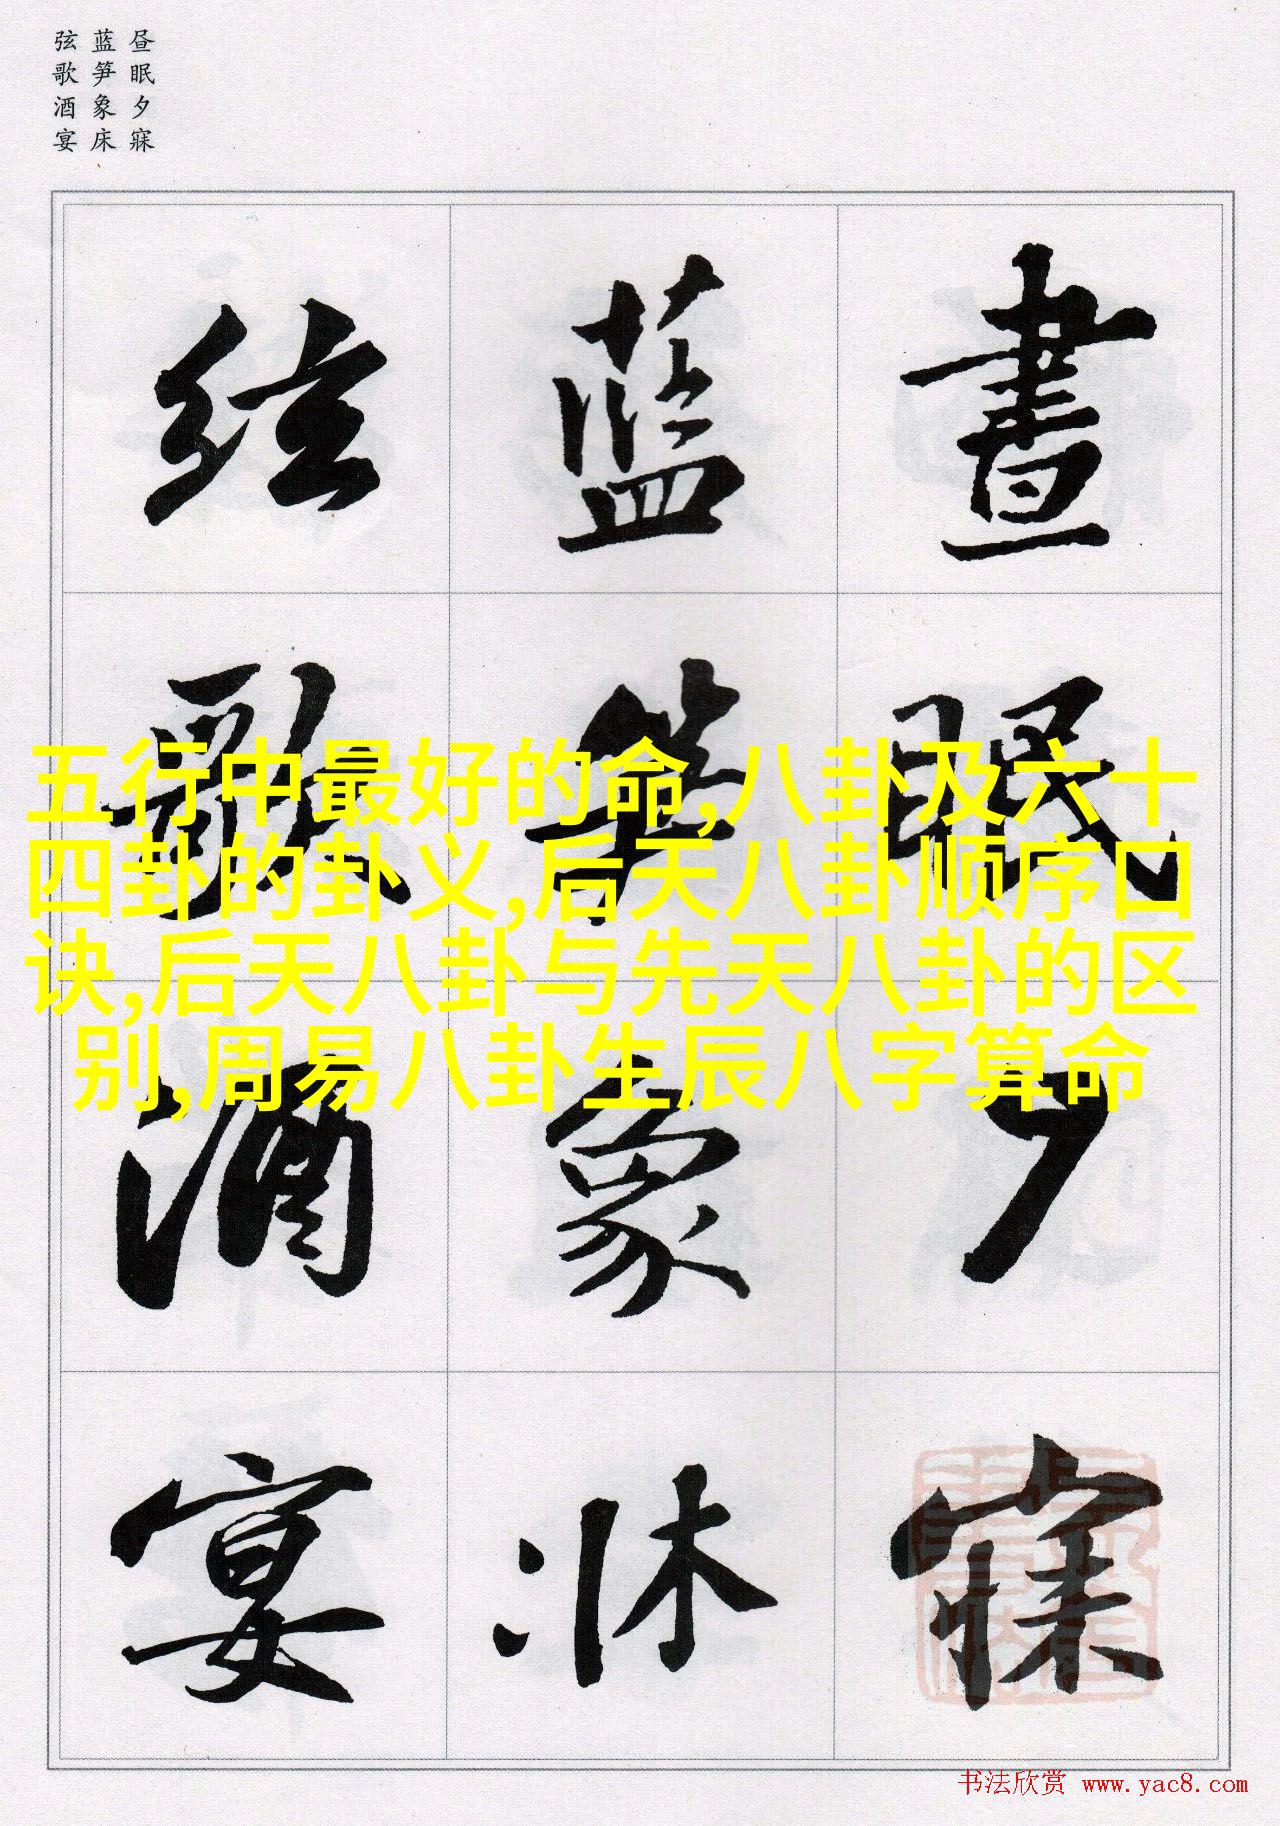 昼眠夕寐
蓝笋象床
弦歌酒宴
晝眠夕寐
蓝笋象床
弦歌酒宴
五行中最好的命,八卦及六十
四卦的卦义,后天八卦顺序口
诀,后天八卦与先天八卦的区
别,周易八卦生辰八字算命
书法欣赏 www.yac8.com